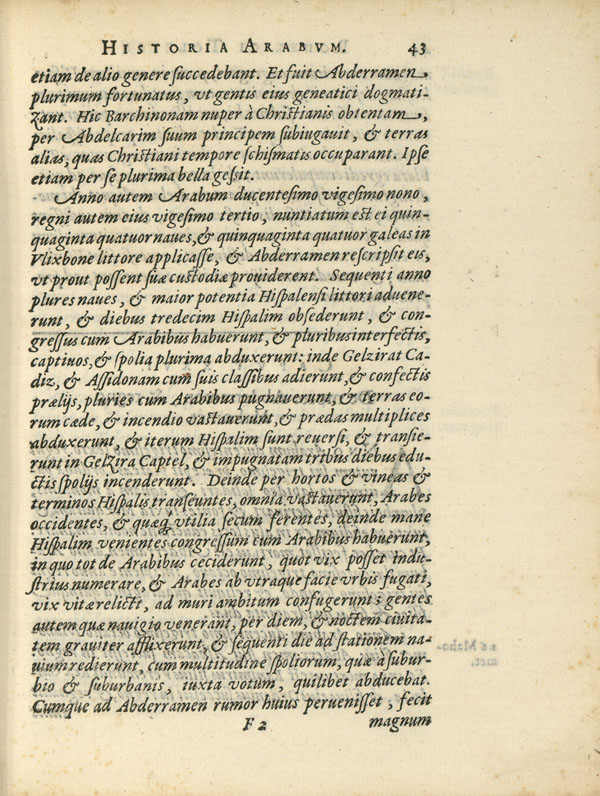 HISTORIA ARABVM. 43
etiam de alio genere succedebant. Et fuit Abderramen,
plurimum fortunatus, vt gentis eius geneatici dogmati-
zant. Hic Barchinonam nuper à Christianis obtentam,
per Abdelcarim suum principem subiugauit, & terras
alias, quas Christiani tempore schismatis occuparant. Ipse
etiam per se plurima bella gessit.
Anno autem Arabum ducentesimo vigesimo nono,
regni autem eius vigesimo tertio, nuntiatum est ei quin-
quaginta quatuor naues, & quinquaginta quatuor galeas in
Vlixbone littore applicasse, & Abderramen rescripsit eis,
vt prout possent suæ custodiæ prouiderent. Sequenti anno
plures naues, & maior potentia Hispalensi littori aduene-
runt, & diebus tredecim Hispalim obsederunt, & con-
gressus cum Arabibus habuerunt, & pluribus interfectis,
captiuos, & spolia plurima abduxerunt: inde Gelzirat Ca-
diz, & Assidonam cum suis classibus adierunt, & confectis
prælijs, pluries cum Arabibus pugnauerunt, & terras eo-
rum cæde, & incendio vastauerunt, & prædas multiplices
abduxerunt, & iterum Hispalim sunt reuersi, & transie-
runt in Gelzira Captel, & impugnatam tribus diebus edu-
ctis spolijs incenderunt. Deinde per hortos & vineas &
terminos Hispalis transeuntes, omnia vastauerunt, Arabes
occidentes, & quæq; vtilia secum ferentes, deinde mane
Hispalim venientes congressum cum Arabibus habuerunt,
in quo tot de Arabibus ceciderunt, quot vix posset indu-
strius numerare, & Arabes ab vtraque facie vrbis fugati,
vix vitæ relicti, ad muri ambitum confugerunt; gentes
autem quæ nauigio venerant, per diem, & noctem ciuita-
tem grauiter afflixerunt, & sequenti die ad stationem na-
uium redierunt, cum multitudine spoliorum, quæ à subur-
bio & suburbanis, iuxta votum, quilibet abducebat.
Cumque ad Abderramen rumor huius peruenisset, fecit
F 2 magnum